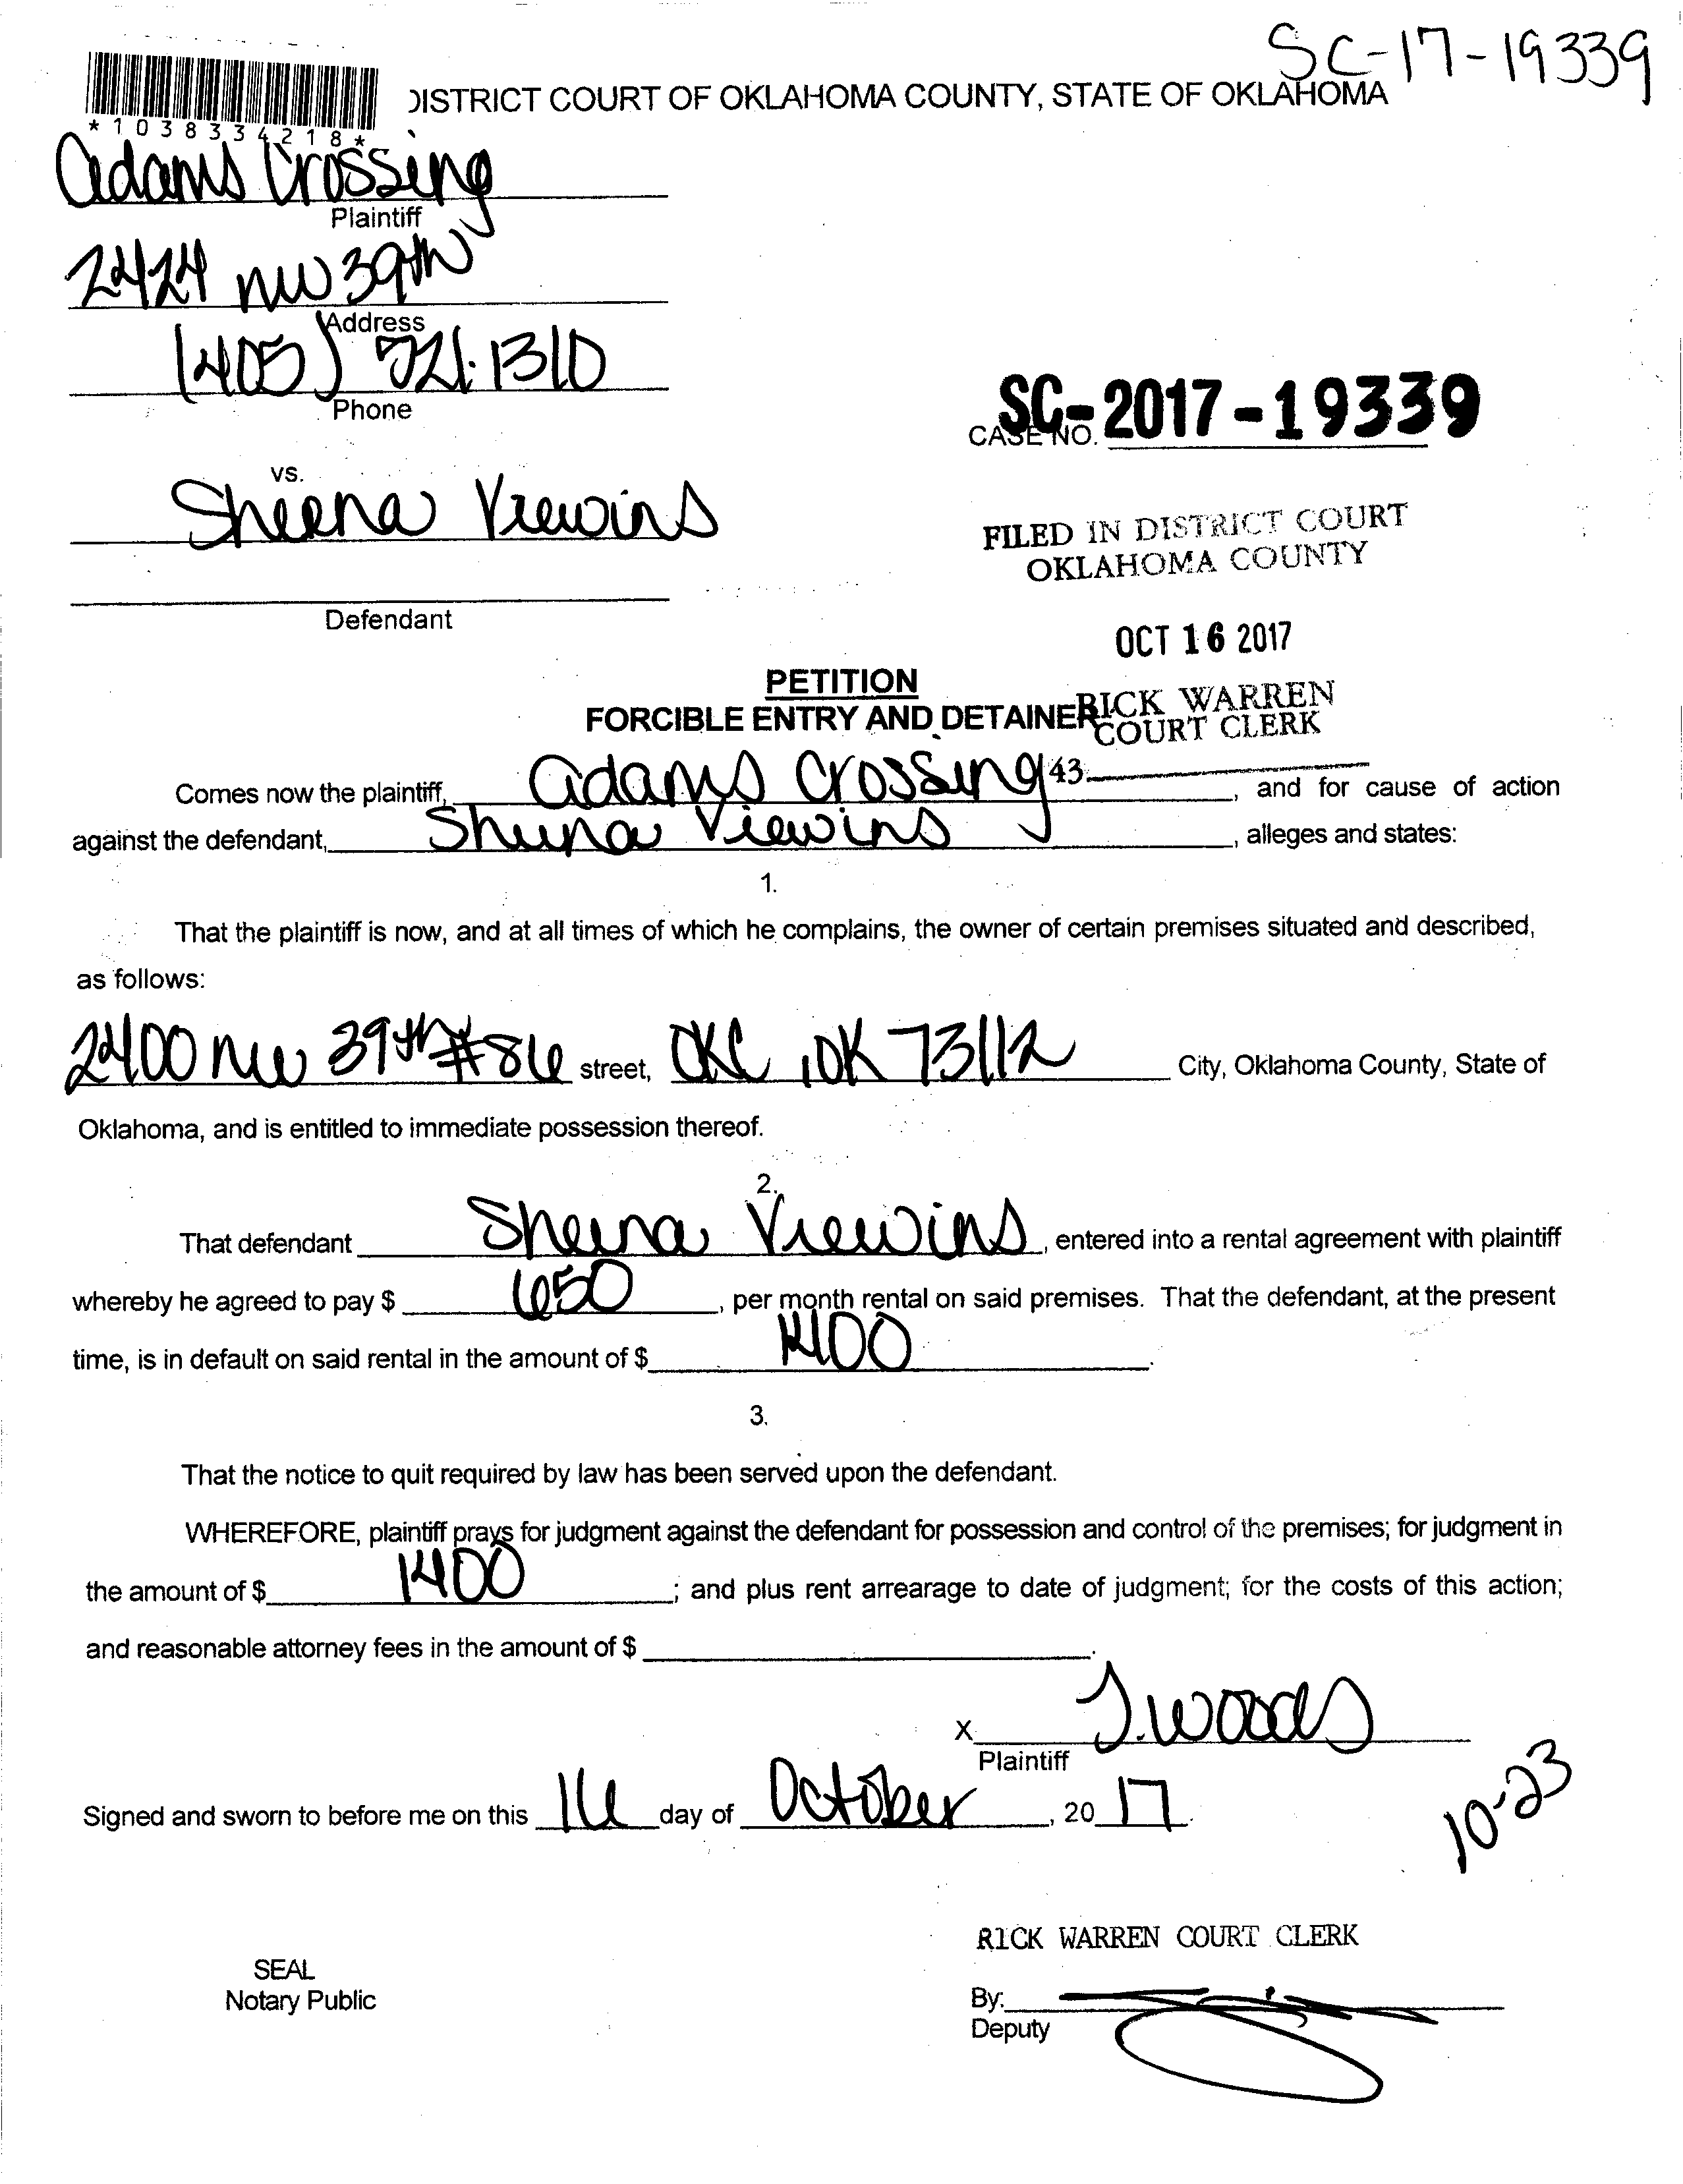 SC-17-19339
DISTRICT COURT OF OKLAHOMA COUNTY, STATE OF OKLAHOMA
*1038334218*
Adams Crossing
Plaintiff
2424 NW 39th
Address
(405) 521-1310
Phone
SC-2017-19339
CASE NO.
vs.
Sheena Viewins
FILED IN DISTRICT COURT
OKLAHOMA COUNTY
Defendant
OCT 16 2017
PETITION
FORCIBLE ENTRY AND DETAINER
RICK WARREN
COURT CLERK
43
Comes now the plaintiff, Adams Crossing, and for cause of action
against the defendant, Sheena Viewins, alleges and states:
1.
That the plaintiff is now, and at all times of which he complains, the owner of certain premises situated and described,
as follows:
2400 NW 39th #86 street, OKC, OK 73112 City, Oklahoma County, State of
Oklahoma, and is entitled to immediate possession thereof.
2.
That defendant Sheena Viewins, entered into a rental agreement with plaintiff
whereby he agreed to pay $ 650, per month rental on said premises. That the defendant, at the present
time, is in default on said rental in the amount of $ 1400.
3.
That the notice to quit required by law has been served upon the defendant.
WHEREFORE, plaintiff prays for judgment against the defendant for possession and control of the premises; for judgment in
the amount of $ 1400; and plus rent arrearage to date of judgment; for the costs of this action;
and reasonable attorney fees in the amount of $ .
X J. Woods
Plaintiff
Signed and sworn to before me on this 16 day of October, 20 17.
10-23
RICK WARREN COURT CLERK
SEAL
Notary Public
By:
Deputy